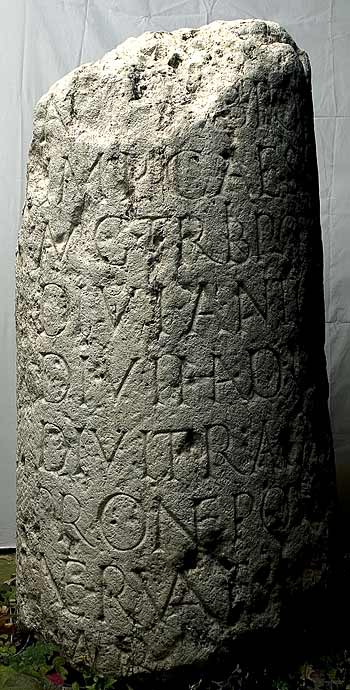 IMP CAES
AVG TR P PO
DIVI ANT
DIVI HAD
DIVI TRA
PRONEPO
VERVA